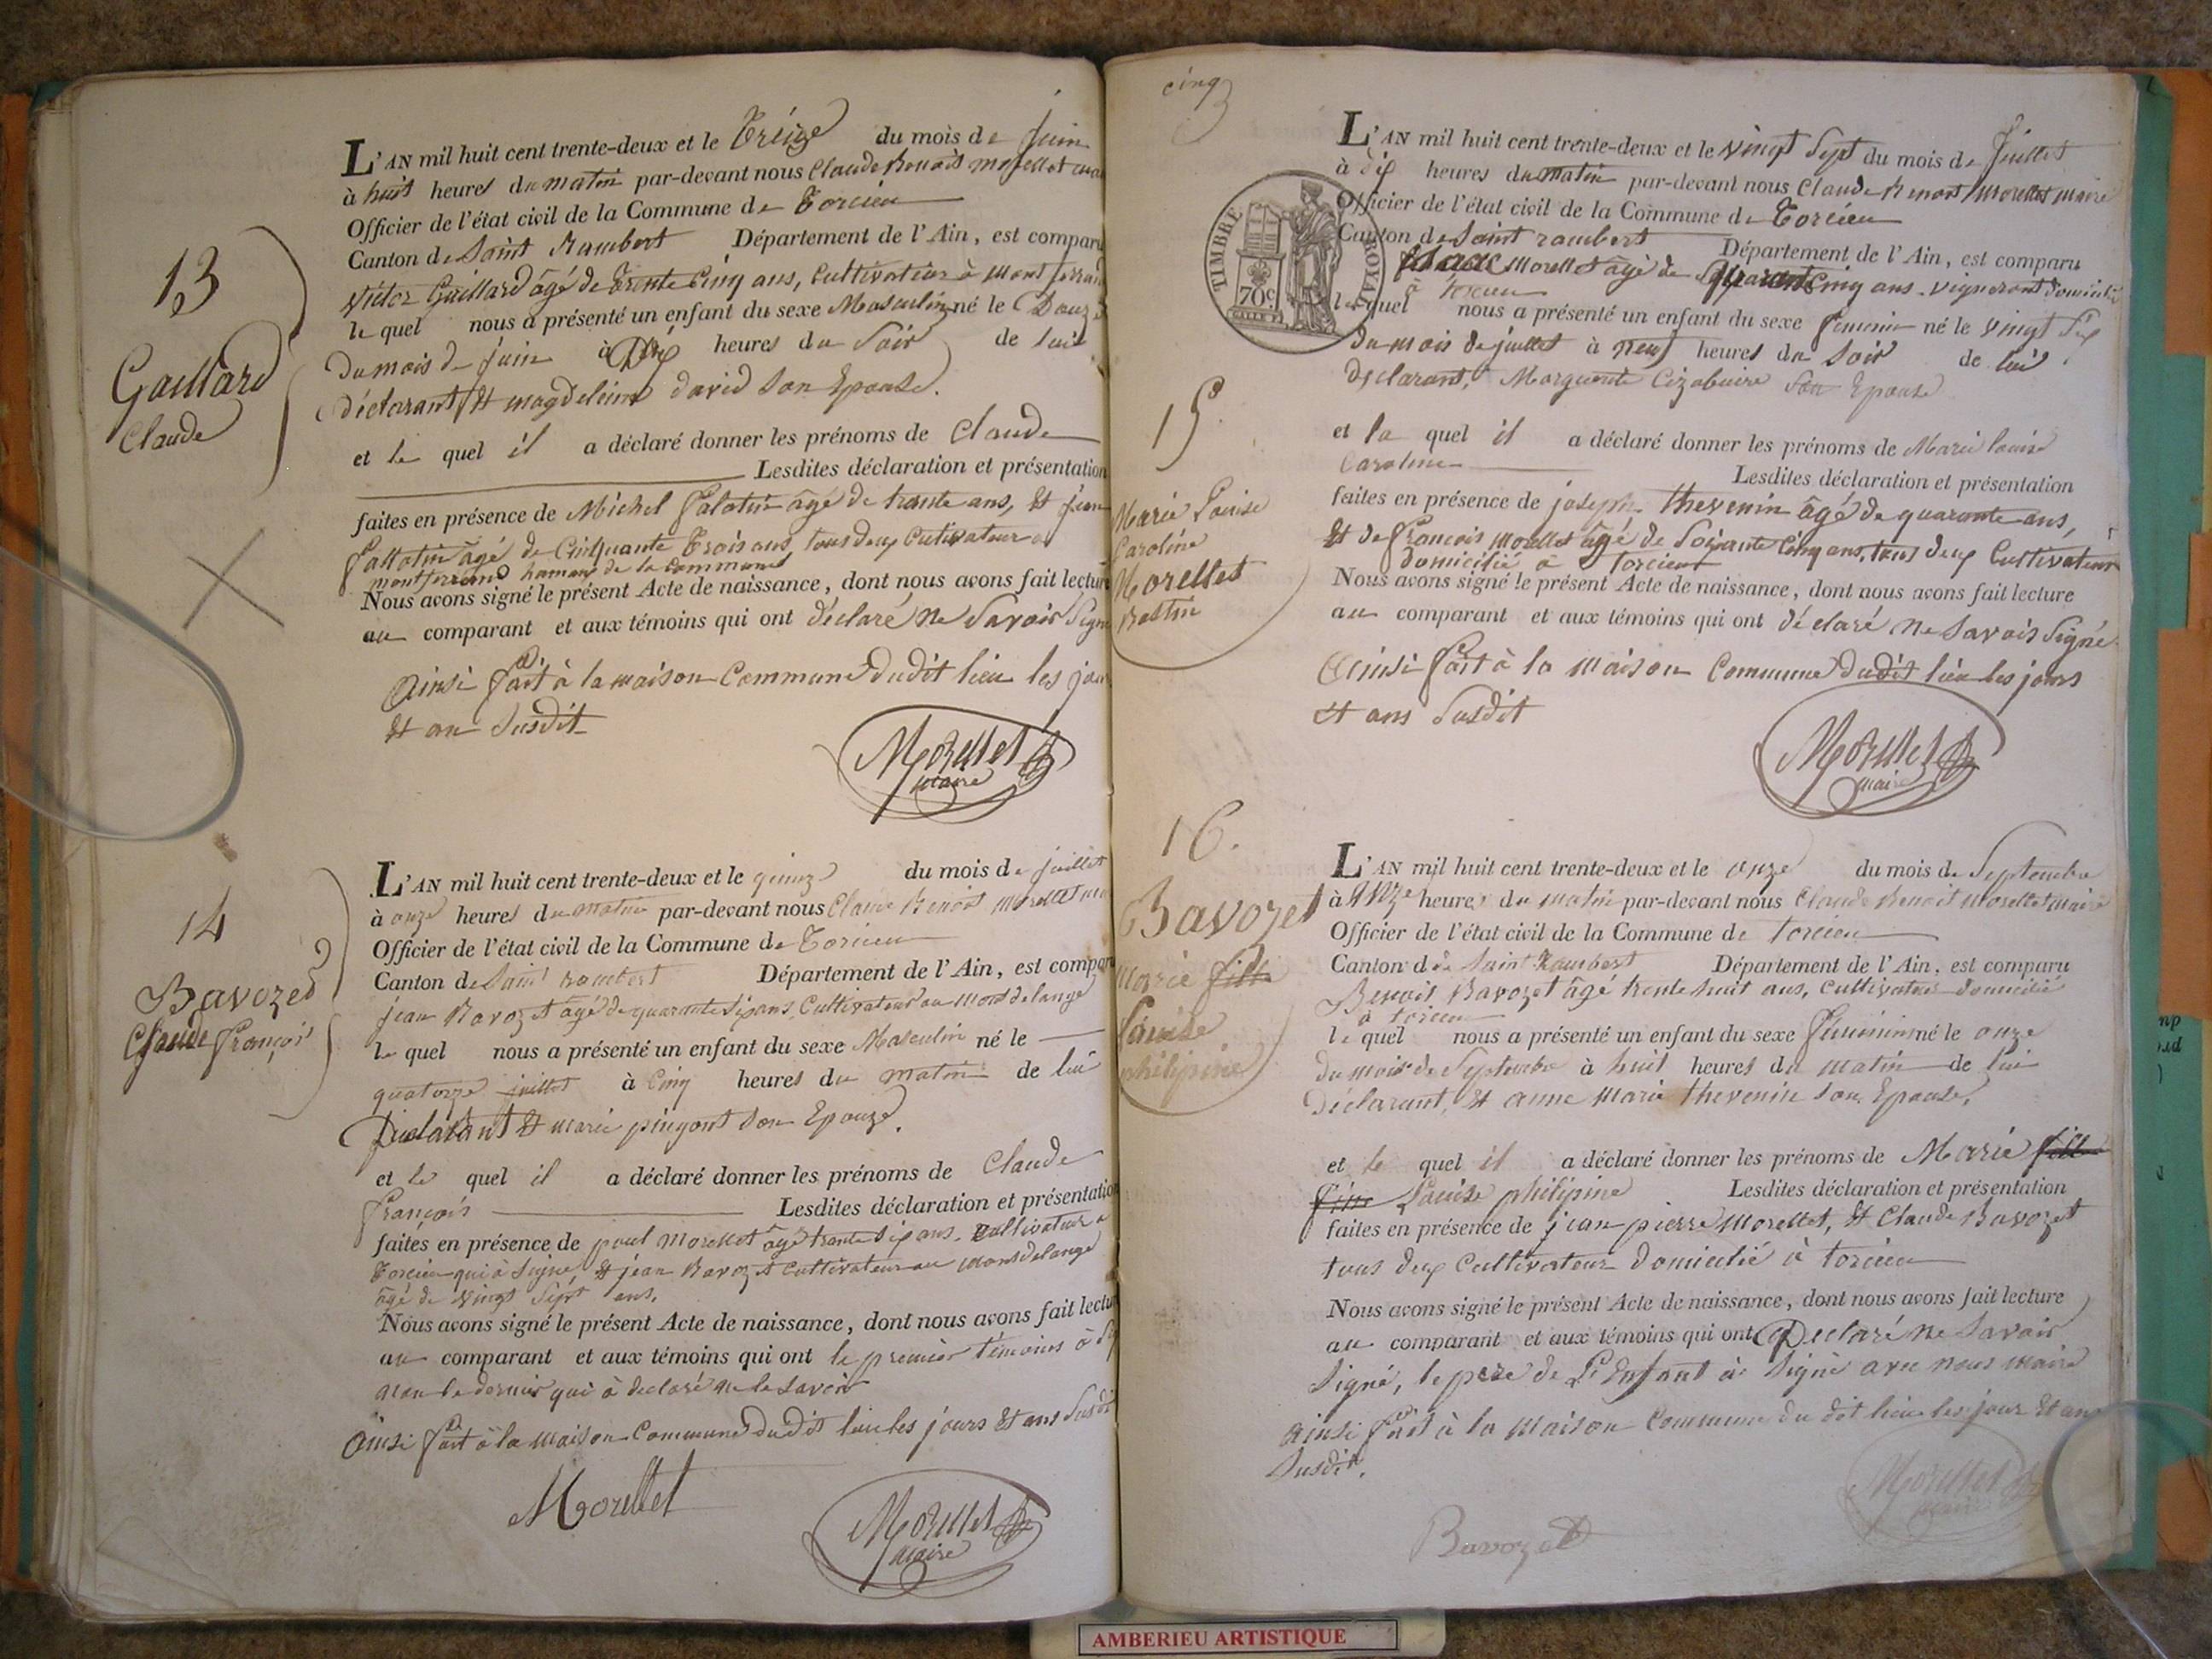 13
Gaillard
Claude
L'AN mil huit cent trente-deux et le Treize du mois de Juin
à huit heures du matin par-devant nous Claude Benoit morellet
Officier de l'état civil de la Commune de Torcieu
Canton de Saint Rambert Département de l'Ain, est comparu
Victor Gaillard âgé de Trente Cinq ans, Cultivateur à Mont ferrand
le quel nous a présenté un enfant du sexe Masculin né le Douze
du mois de Juin à Dix heures du Soir de lui
déclarant Et magdeleine david Son Epouse.
et le quel il a déclaré donner les prénoms de Claude
Lesdites déclaration et présentation
faites en présence de Michel Falatin âgé de trante ans, Et jean
fallatin âgé de Cinquante Trois ans tous deux Cutivateur a
montferrand hamaux de la Commune
Nous avons signé le présent Acte de naissance, dont nous avons fait lecture
au comparant et aux témoins qui ont déclaré ne Savoir Signé
Ainsi fait à la maison Commune dudit lieu les jour
Et an Susdit
Morellet
maire
14
Bavozet
Claude françois
L'AN mil huit cent trente-deux et le quinze du mois de juillet
à onze heures du matin par-devant nous Claude Benoit Morellet
Officier de l'état civil de la Commune de Torcieu
Canton de Saint rambert Département de l'Ain, est comparu
jean Bavozet âgé de quarante six ans, Cultivateur au Mont de lange
le quel nous a présenté un enfant du sexe Masculin né le
quatorze juillet à Cinq heures du matin de lui
Déclarant Et marie Son Epouze.
et le quel il a déclaré donner les prénoms de Claude
François Lesdites déclaration et présentation
faites en présence de paul Morellet âgé trante six ans, Cultivateur a
Torcieu qui à Signé, Et jean Bavozet Cultivateur au Mont de lange
âgé de vingt Sept ans,
Nous avons signé le présent Acte de naissance, dont nous avons fait lecture
au comparant et aux témoins qui ont le premier témoins à
non le dernier qui à declaré ne le Savoir
Ainsi fait à la maison Commune du dit lieu les jours Et ans Susdit
Morellet
Morellet
maire
cinq
15
Marie Louise
Caroline
Morellet
L'AN mil huit cent trente-deux et le vingt Sept du mois de Juillet
à dix heures du matin par-devant nous Claude Benoit Morellet Maire
Officier de l'état civil de la Commune de Torcieu
Canton de Saint rambert Département de l'Ain, est comparu
Isaac Morellet âgé de quarante Cinq ans vigneront domicilié
à torcieu
TIMBRE ROYAL
70 c
le quel nous a présenté un enfant du sexe feminin né le vingt Six
du mois de juillet à neuf heures du Soir de lui
Déclarant, Marguerite Son Epouse
et la quel il a déclaré donner les prénoms de Marie louise
Caroline Lesdites déclaration et présentation
faites en présence de joseph thevenin âgé de quarante ans,
Et de françois Morellet âgé de Soixante Cinq ans, tous deux Cultivateur
domicilié a torcieu
Nous avons signé le présent Acte de naissance, dont nous avons fait lecture
au comparant et aux témoins qui ont déclaré ne Savoir Signé
Ainsi fait à la maison Commune dudit lieu les jours
Et ans Susdit
Morellet
maire
16.
Bavozet
Marie fille
Louise
philipine
L'AN mil huit cent trente-deux et le onze du mois de Septembre
à onze heure du matin par-devant nous Claude Benoit Morellet maire
Officier de l'état civil de la Commune de torcieu
Canton de Saint Rambert Département de l'Ain, est comparu
Benoit Bavozet âgé trente huit ans, Cultivateur domicilié
à torcieu
le quel nous a présenté un enfant du sexe feminin né le onze
du mois de Septembre à huit heures du matin de lui
Déclarant, Et anne Marie thevenin Son Epouse,
et le quel il a déclaré donner les prénoms de Marie
Louise philipine Lesdites déclaration et présentation
faites en présence de jean pierre Morellet, Et Claude Bavozet
tous deux Cultivateur Domicilié à torcieu
Nous avons signé le présent Acte de naissance, dont nous avons fait lecture
au comparant et aux témoins qui ont Declaré ne Savoir
Signé, le pere de L'Enfant à Signé avec nous maire
Ainsi fait à la Maison Commune du dit lieu les jour Et an
Susdit.
Morellet
maire
Bavozet
AMBERIEU ARTISTIQUE